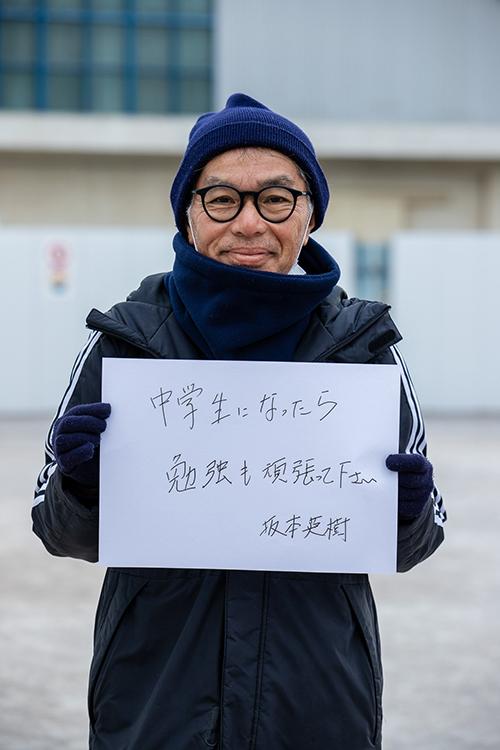 中学生になったら
勉強も頑張って下さい
坂本英樹